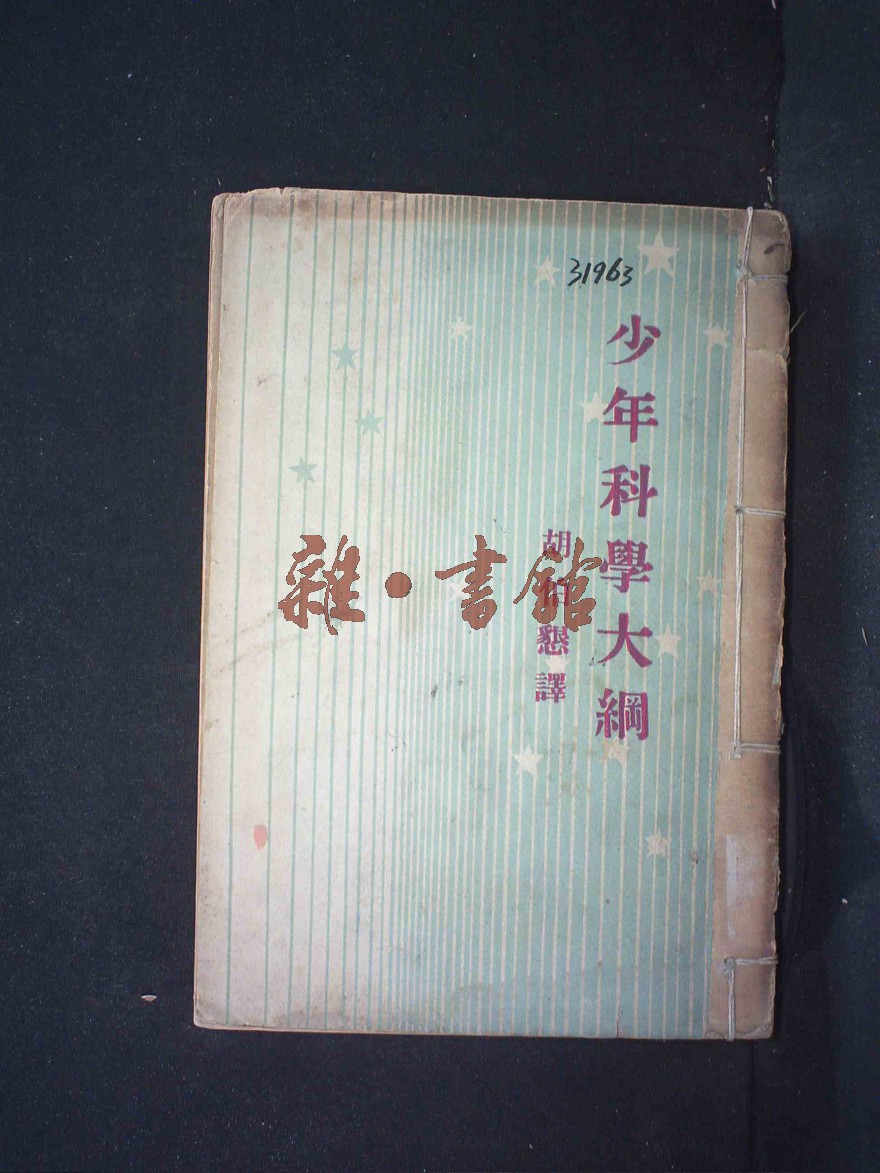 31963
少年科學大綱
胡伯懇譯
雜·書館